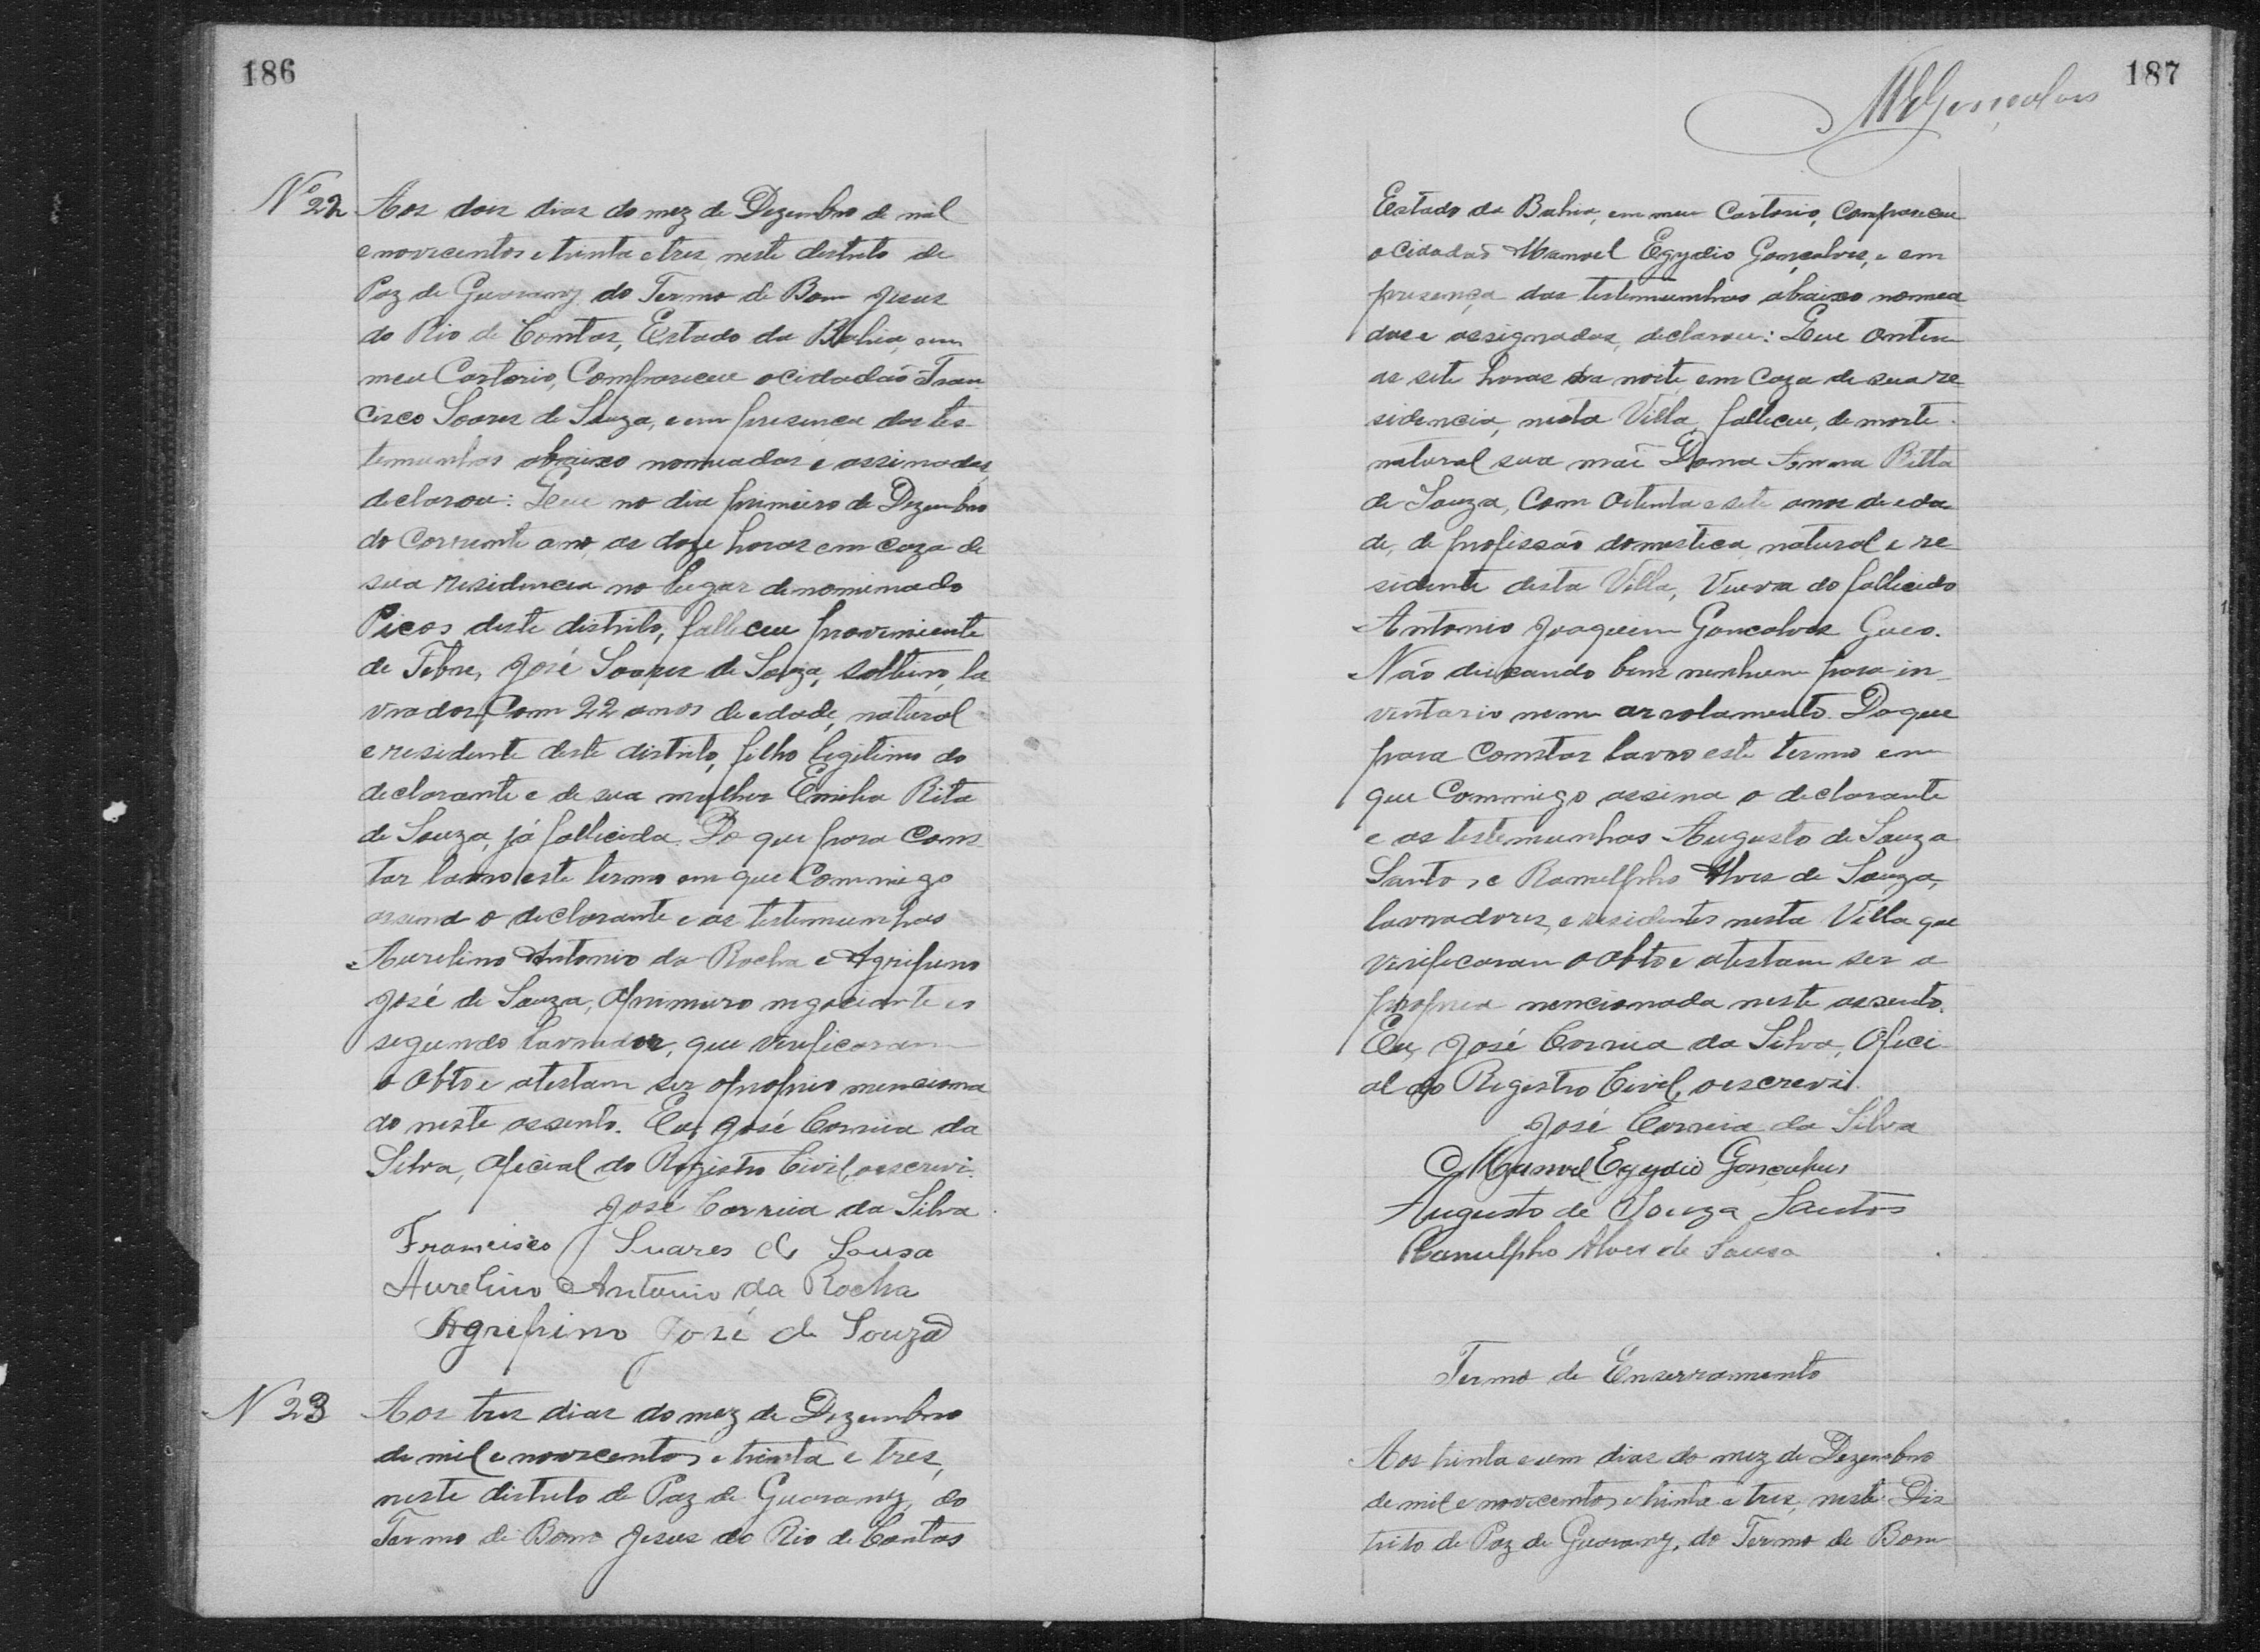 186
Nº 22 Aos dois dias do mez de Dezembro de mil
e novecentos e trinta e tres, neste destrito de
Paz de Guarany do Termo de Bom Jesus
do Rio de Contas, Estado da Bahia, em
meu Cartorio, Compareceu o cidadão Fran
cisco Soares de Souza, e em presença das tes-
temunhas abaixo nomeadas e assinadas,
declarou: Que no dia primeiro de Dezembro
do Corrente ano, as doze horas em caza de
sua residencia no lugar denominado
Picos, deste distrito, falleceu proveniente
de Febre, José Soares de Souza, solteiro, la
vrador, Com 22 anos de edade, natural
e residente deste distrito, filho legitimo do
declarante e de sua mulher Emilia Rita
de Souza, já fallecida. Do que para Cons-
tar lavro este termo em que Commigo
assina o declarante e as testemunhas
Aurelino Antonio da Rocha e Agripino
José de Souza, o primeiro negociante e o
segundo lavrador, que verificaram
o Obto e atestam ser o proprio menciona
do neste assento. Eu, José Correia da
Silva, Oficial do Registro Civil, o escrevi.
José Correia da Silva
Francisco Suares de Sousa
Aurelino Antonio da Rocha
Agrepino José de Souza
N 23 Aos tres dias do mez de Dezembro
de mil e novecentos e trinta e tres,
neste distrito de Paz de Guarany, do
Termo de Bom Jesus do Rio de Contas
187
MEGonçalves
Estado da Bahia, em meu Cartorio, Compareceu
o Cidadaõ Manoel Egydio Gonçalves, e em
presença das testemunhas abaixo nomea
das e assignadas, declarou: Que ontem
as sete horas da noite, em Caza de sua re-
sidencia, nesta Villa, falleceu, de morte
natural sua maĩ Dona Anna Ritta
de Souza, Com oitenta e sete anos de eda-
de, de profissaõ domestica, natural e re-
sidente desta Villa, Viuva do fallecido
Antonio Joaquim Goncalves
Não deixando bens nenhum para in-
ventario nem arrolamento. Do que
para Constar lavro este termo em
que Commigo assina o declarante
e as testemunhas Augusto de Souza
Santos e Ranulpho Alves de Souza,
lavradores, e residentes nesta Villa que
verificaram o Obto e atestam ser a
propria mencionada neste assento.
Eu, José Correia da Silva, Ofici-
al do Registro Civil, o escrevi.
José Correia da Silva
Manoel Egydio Gonçalves
Augusto de Souza Santos
Ranulpho Alves de Sousa
Termo de Enserramento
Aos trinta e um dias do mez de Dezembro
de mil e novecentos e trinta e tres, neste Dis
trito de Paz de Guarany, do Termo de Bom